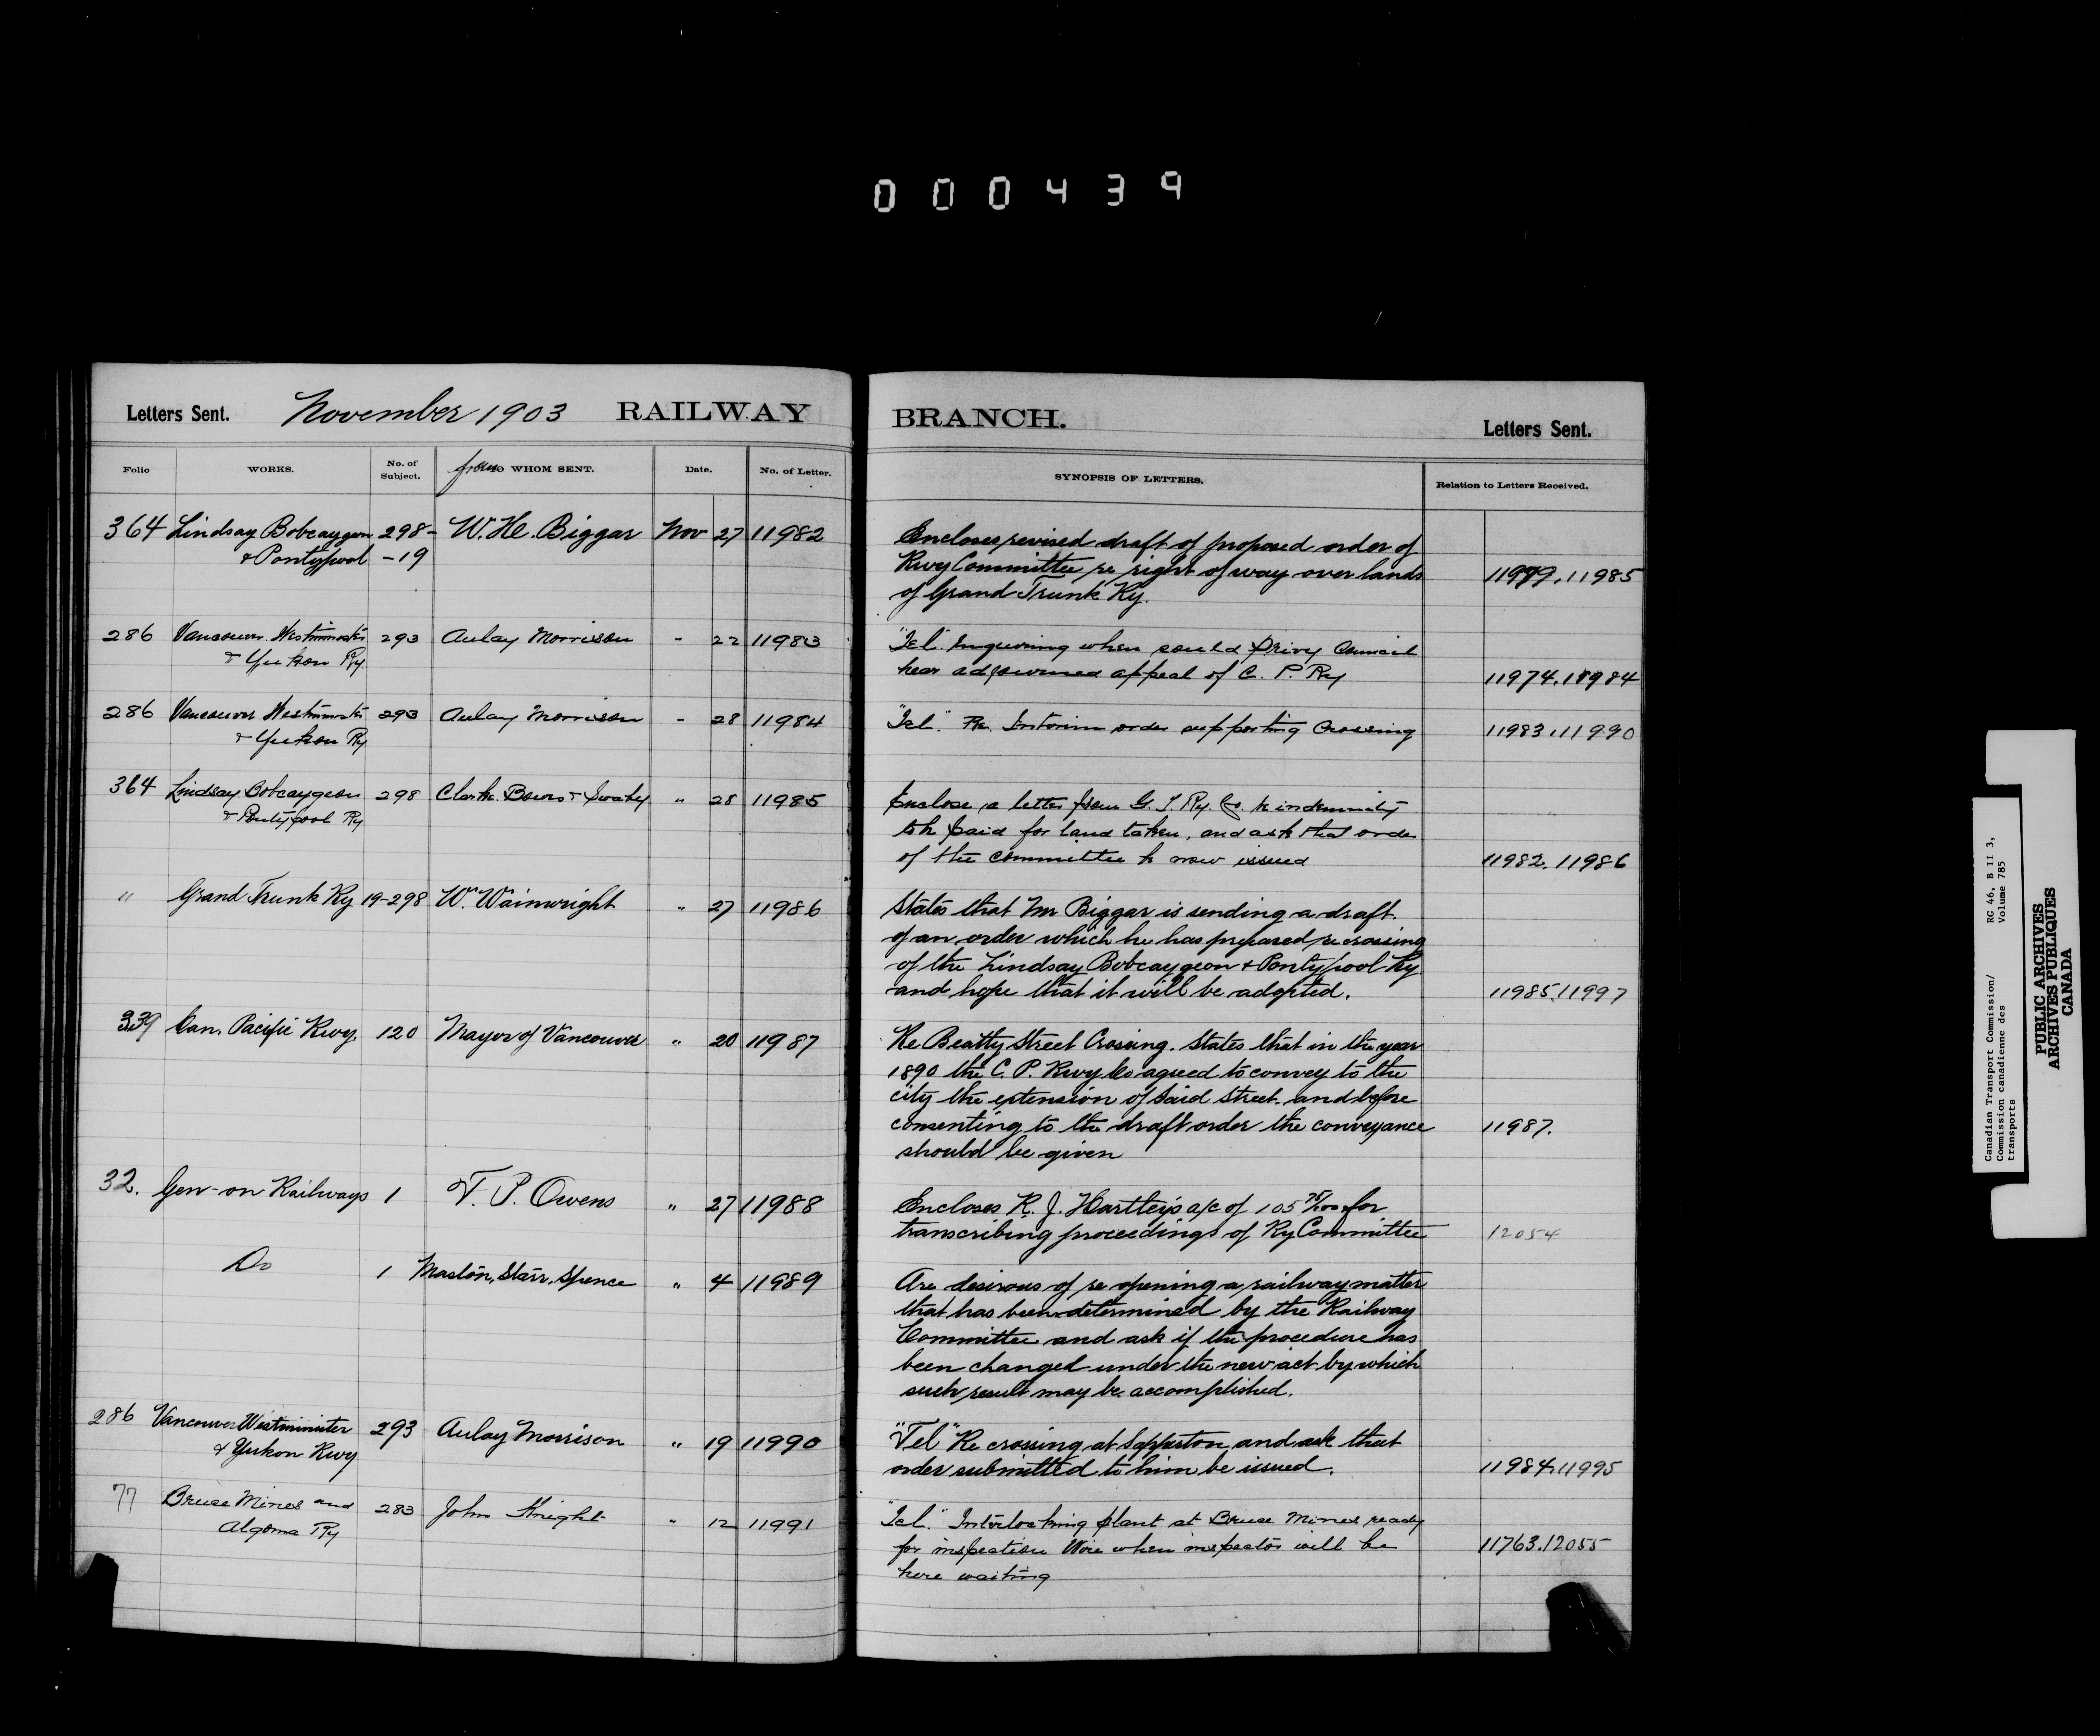 000439
Letters Sent. November 1903 RAILWAY BRANCH. Letters Sent.
Folio WORKS. No. of Subject. from TO WHOM SENT. Date. No. of Letter. SYNOPSIS OF LETTERS. Relation to Letters Received.
364 Lindsay Bobcaygeon 298- W. H. Biggar Nov 27 11982 Encloses revised draft of proposed order of
& Pontypool -19 Rwy Committee re right of way over lands 11979.11985
of Grand Trunk Ry.
286 Vancouver Westminster 293 Aulay Morrison " 22 11983 "Tel." Inquiring when could Privy Council
& Yukon Ry. hear adjourned appeal of C. P. Ry 11974.11984
286 Vancouver Westminster 293 Aulay Morrison " 28 11984 "Tel". Re. Interim order supporting Crossing 11983.11990
& Yukon Ry
364 Lindsay Bobcaygeon 298 Clarke. Bowes & Swabey " 28 11985 Enclose a letter from G. T. Ry. Co. re indemnity
& Pontypool Ry to be paid for land taken, and ask that order
of the committee be now issued 11982. 11986
" Grand Trunk Ry 19-298 Wm. Wainwright " 27 11986 States that Mr Biggar is sending a draft
of an order which he has prepared re crossing
of the Lindsay Bobcaygeon & Pontypool Ry.
and hope that it will be adopted. 11985.11997
339 Can. Pacific Rwy. 120 Mayor of Vancouver " 20 11987 Re Beatty Street Crossing. States that in the year
1890 the C. P. Rwy Co agreed to convey to the
city the extension of said street and before
consenting to the draft order the conveyance 11987.
should be given
32. Gen- on Railways 1 T. P. Owens " 27 11988 Encloses R. J. Hartley's a/c of 105 75/100 for
transcribing proceedings of Ry Committee 12054
Do 1 Masten, Starr, Spence " 4 11989 Are desirous of re opening a railway matter
that has been determined by the Railway
Committee and ask if the procedure has
been changed under the new act by which
such result may be accomplished.
286 Vancouver Westminister 293 Aulay Morrison " 19 11990 "Tel" Re crossing at Sapperton, and ask that
& Yukon Rwy order submitted to him be issued. 11984.11995
77 Bruce Mines and 283 John Knight " 12 11991 "Tel." Interlocking plant at Bruce Mines ready
Algoma Ry for inspection Wire when inspector will be 11763.12055
here waiting
Canadian Transport Commission/ RG 46, B II 3,
Commission canadienne des Volume 785
transports
PUBLIC ARCHIVES
ARCHIVES PUBLIQUES
CANADA